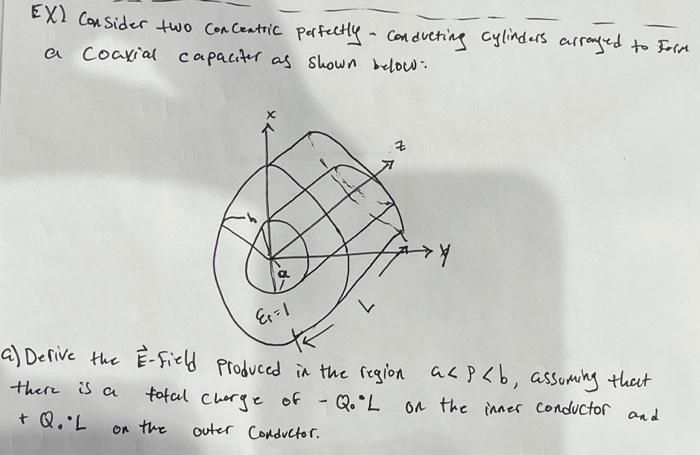 EX) Consider two Concentric perfectly - conducting cylinders arranged to Form
a Coaxial capaciter as shown below:
x
z
b
a
y
εr=1
L
a) Derive the E⃗-Field produced in the region a<ρ<b, assuming that
there is a total charge of -Q₀·L on the inner conductor and
+Q₀·L on the outer Conductor.